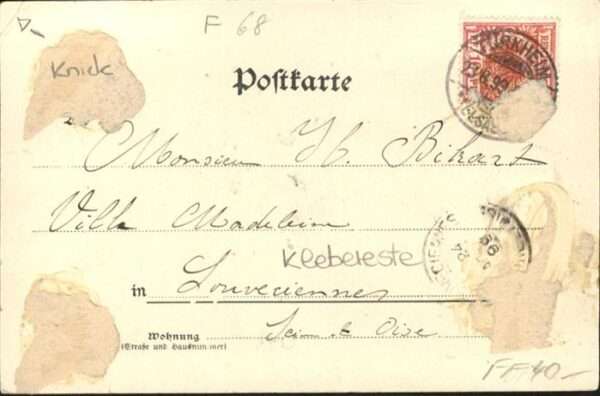 F 68
Knick
Postkarte
TÜRKHEIM
Monsieur H. Bikart
Villa Madeleine
Klebereste
in Louveciennes
Wohnung
Seine et Oise
(Straße und Hausnummer)
FF 40,-